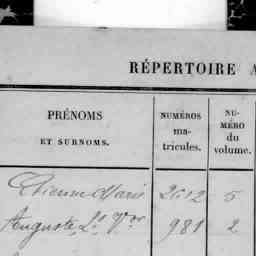 RÉPERTOIRE A
PRÉNOMS
ET SURNOMS.
NUMÉROS
ma-
tricules.
NU-
MÉRO
du
volume.
Etienne Marie 2612 5
Auguste, Ls Vor 981 2